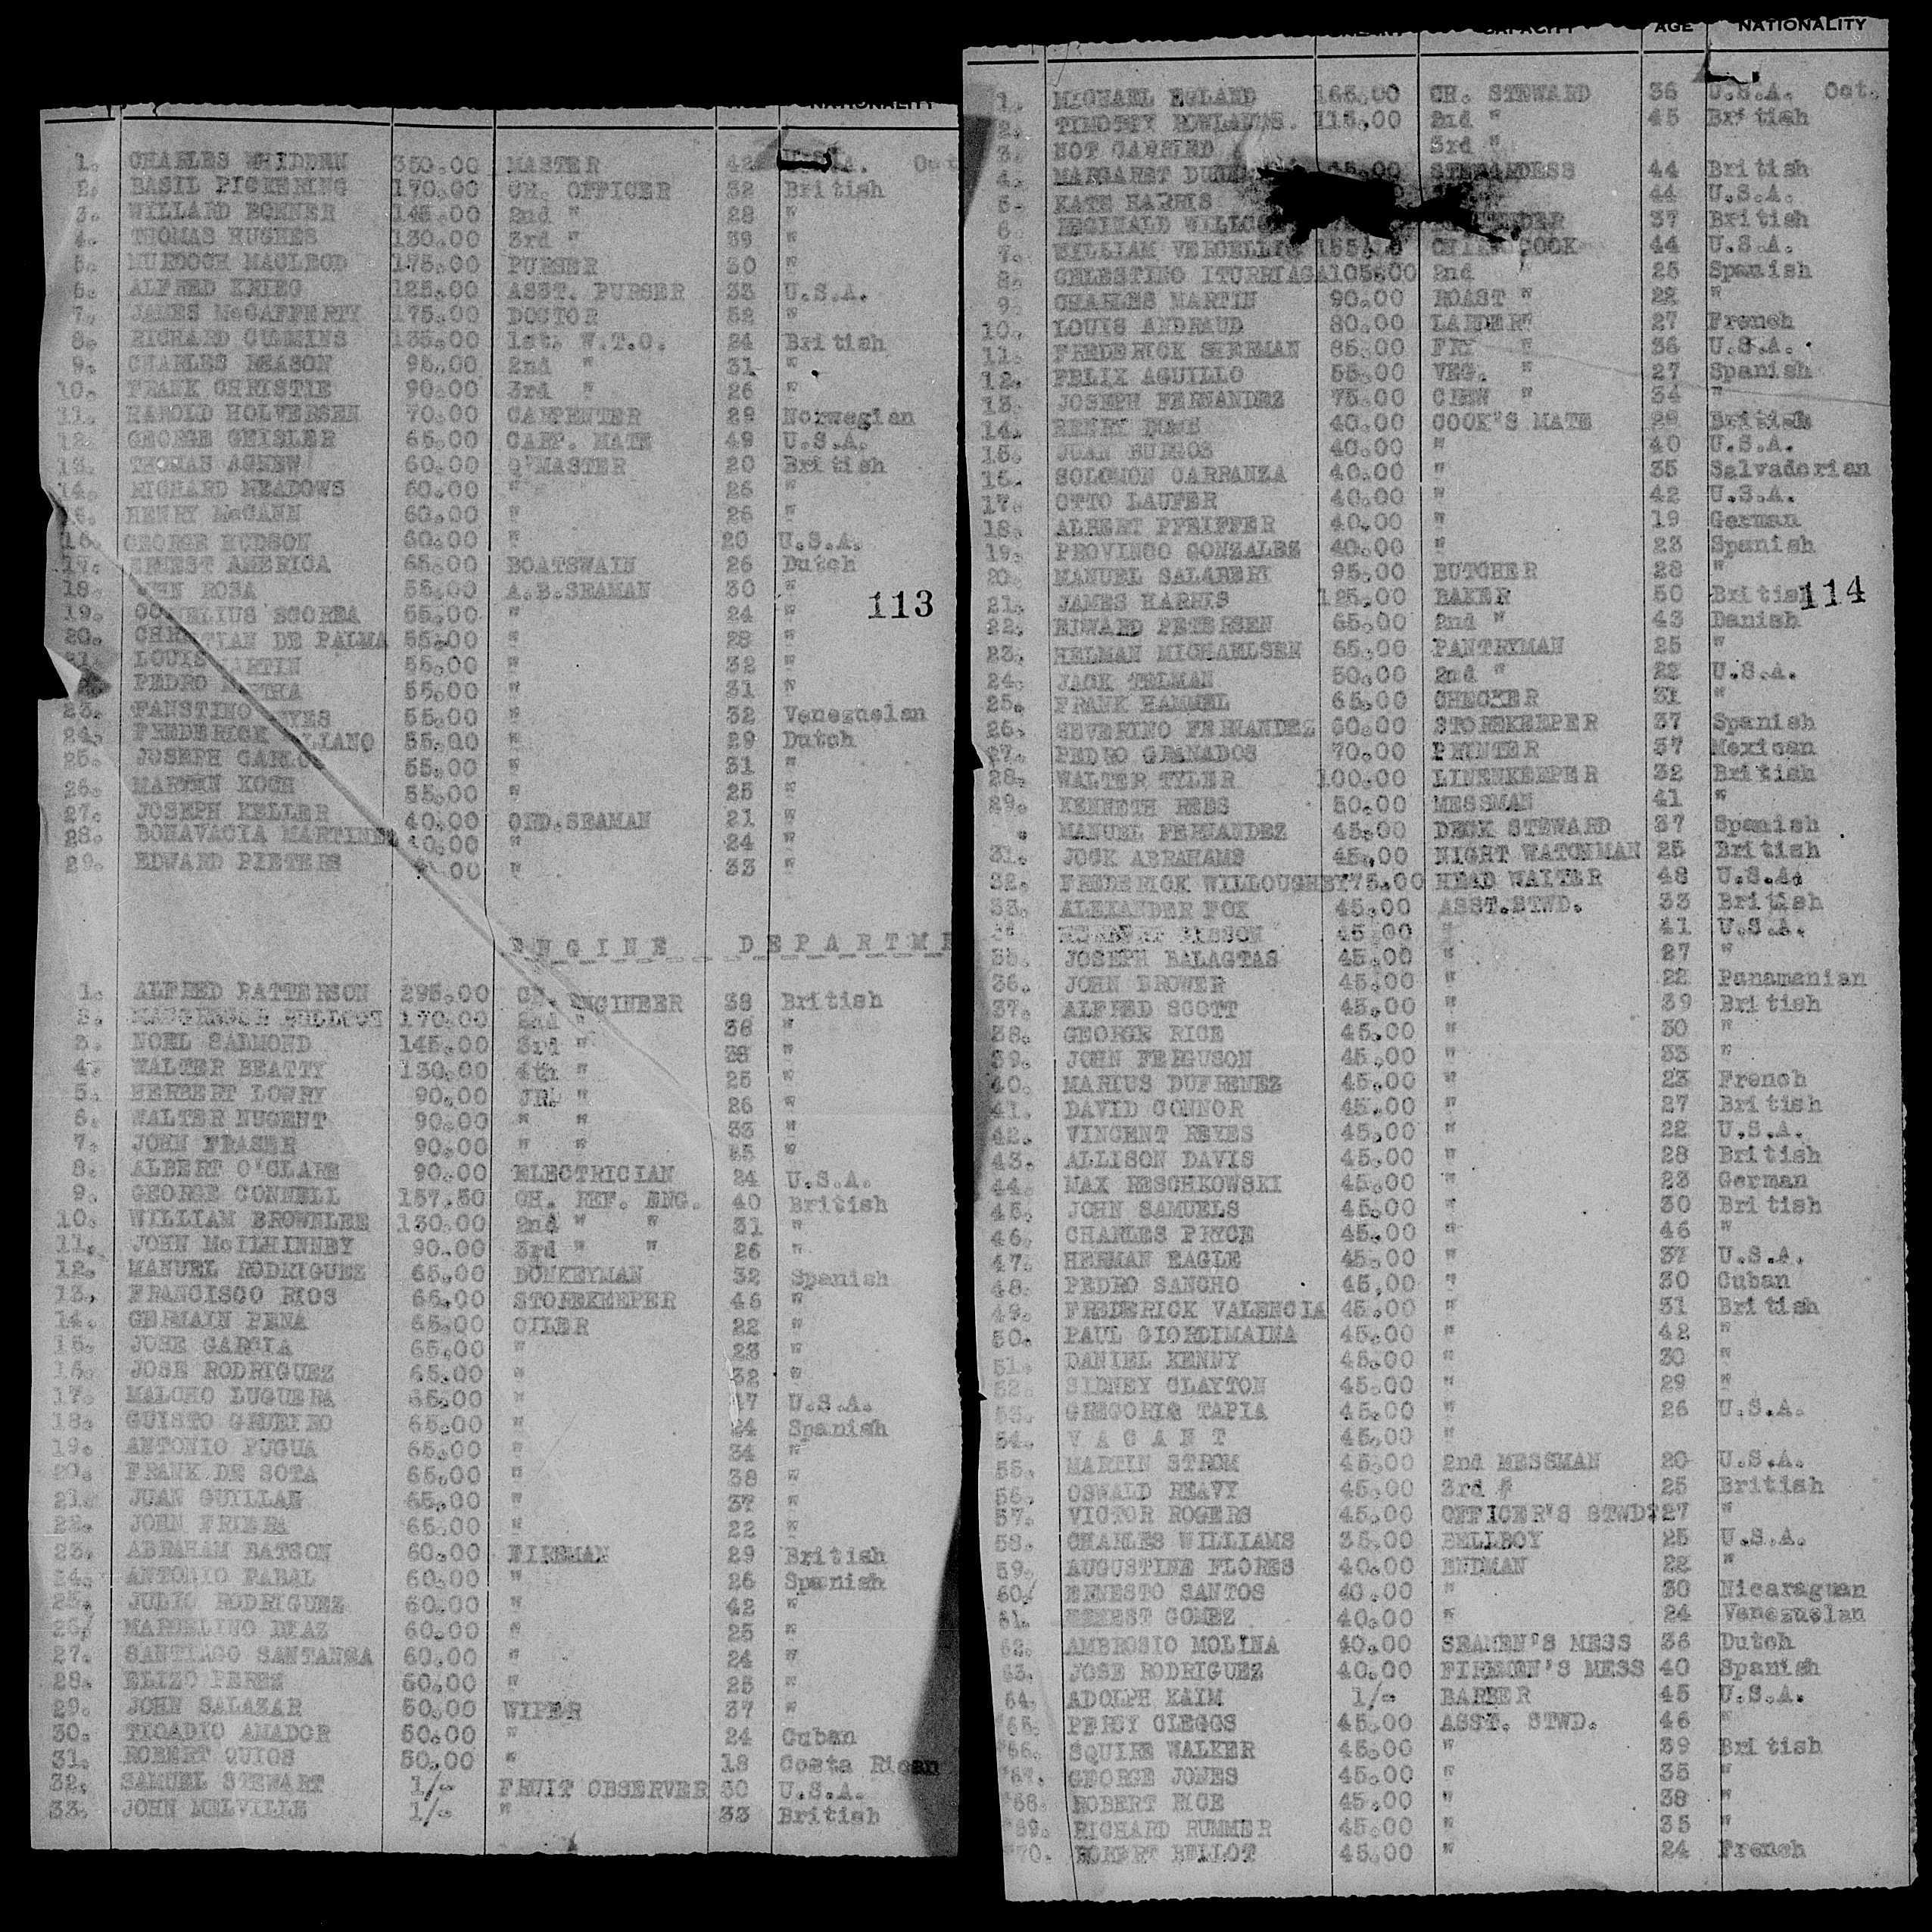 NATIONALITY
1. CHARLES WHIDDEN 350.00 MASTER 42 U.S.A. Oct
2. BASIL PICKERING 170.00 CH. OFFICER 32 British
3. WILLARD BONNER 145.00 2nd " 28 "
4. THOMAS HUGHES 130.00 3rd " 39 "
5. MURDOCH MACLEOD 175.00 PURSER 30 "
6. ALFRED KRIEG 125.00 ASST. PURSER 33 U.S.A.
7. JAMES McCAFFERTY 175.00 DOCTOR 52 "
8. RICHARD CUMMINS 135.00 1st. W.T.O. 24 British
9. CHARLES BEASON 95.00 2nd " 31 "
10. FRANK CHRISTIE 90.00 3rd " 26 "
11. HAROLD HOLVERSEN 70.00 CARPENTER 29 Norwegian
12. GEORGE GEISLER 65.00 CARP. MATE 49 U.S.A.
13. THOMAS AGNEW 60.00 Q'MASTER 20 British
14. RICHARD MEADOWS 60.00 " 26 "
15. HENRY McCANN 60.00 " 26 "
16. GEORGE HUDSON 60.00 " 20 U.S.A.
17. ERNEST AMERICA 65.00 BOATSWAIN 26 Dutch
18. JOHN ROSA 55.00 A.B.SEAMAN 30 "
113
19. CORNELIUS SCOREA 55.00 " 24 "
20. DE PALMA 55.00 " 28 "
21. LOUIS MARTIN 55.00 " 32 "
PEDRO 55.00 " 31 "
23. FANSTINO 55.00 " 32 Venezuelan
24. FREDERICK 55.00 " 29 Dutch
25. JOSEPH 55.00 " 31 "
26. MARTEN KOCH 55.00 " 25 "
27. JOSEPH KELLER 40.00 ORD.SEAMAN 21 "
28. BONAVACIA MARTINES 40.00 " 24 "
29. EDWARD PIETERS 00 " 33 "
ENGINE DEPARTME
1. ALFRED PATTERSON 295.00 CH. ENGINEER 38 British
2. 170.00 2nd " 36 "
3. NOEL SALMOND 145.00 3rd " 38 "
4. WALTER BEATTY 130.00 4th " 25 "
5. HERBERT LOWRY 90.00 JR. " 26 "
6. WALTER NUGENT 90.00 " " 33 "
7. JOHN FRASER 90.00 " " 25 "
8. ALBERT O'CLARE 90.00 ELECTRICIAN 24 U.S.A.
9. GEORGE CONNELL 157.50 CH. REF. ENG. 40 British
10. WILLIAM BROWNLEE 130.00 2nd " " 31 "
11. JOHN McILHINNEY 90.00 3rd " " 26 "
12. MANUEL RODRIGUEZ 65.00 DONKEYMAN 32 Spanish
13. FRANCISCO RIOS 65.00 STOREKEEPER 46 "
14. GERMAIN PENA 65.00 OILER 22 "
15. JOSE GARCIA 65.00 " 23 "
16. JOSE RODRIGUEZ 65.00 " 32 "
17. MALCHO LUGUERA 65.00 " 47 U.S.A.
18. GUISTO GRUEIRO 65.00 " 24 Spanish
19. ANTONIO FUGUA 65.00 " 34 "
20. FRANK DE SOTA 65.00 " 38 "
21. JUAN GUILLAN 65.00 " 37 "
22. JOHN FRIERA 65.00 " 22 "
23. ABRAHAM BATSON 60.00 FIREMAN 29 British
24. ANTONIO FABAL 60.00 " 26 Spanish
25. JULIO RODRIGUEZ 60.00 " 42 "
26. MARCELINO DIAZ 60.00 " 25 "
27. SANTIAGO SANTANGA 60.00 " 24 "
28. ELIZO PEREZ 60.00 " 25 "
29. JOHN SALAZAR 50.00 WIPER 37 "
30. TIOADIO AMADOR 50.00 " 24 Cuban
31. ROBERT QUIOS 50.00 " 18 Costa Rican
32. SAMUEL STEWART 1/- FRUIT OBSERVER 30 U.S.A.
33. JOHN MELVILLE 1/- " 33 British
CAPACITY AGE NATIONALITY
1. MICHAEL EGLAND 165.00 CH. STEWARD 36 U.S.A. Oct.
2. TIMOTHY ROWLANDS. 115.00 2nd " 45 British
3. NOT CARRIED 3rd "
4. MARGARET STEWARDESS 44 British
5. KATE HARRIS 44 U.S.A.
6. REGINALD 37 British
7. WILLIAM VERCELLIS 155.00 CHIEF COOK 44 U.S.A.
8. CELESTINO ITURRIAGA 105.00 2nd " 25 Spanish
9. CHARLES MARTIN 90.00 ROAST " 22 "
10. LOUIS ANDRAUD 80.00 LARDER" 27 French
11. FREDERICK SHERMAN 85.00 FRY " 36 U.S.A.
12. FELIX AGUILLO 55.00 VEG. " 27 Spanish
13. JOSEPH FERNANDEZ 75.00 CREW " 34 "
14. HENRY 40.00 COOK'S MATE 29 British
15. JUAN BURGOS 40.00 " 40 U.S.A.
16. SOLOMON CARRANZA 40.00 " 35 Salvadorian
17. OTTO LAUFER 40.00 " 42 U.S.A.
18. ALBERT PFEIFFER 40.00 " 19 German
19. PROVINCO GONZALEZ 40.00 " 23 Spanish
20. MANUEL SALABERI 95.00 BUTCHER 28 "
21. JAMES HARRIS 125.00 BAKER 50 British
114
22. EDWARD PETERSEN 65.00 2nd " 43 Danish
23. HELMAN MICHAELSEN 65.00 PANTRYMAN 25 "
24. JACK TELMAN 50.00 2nd " 22 U.S.A.
25. FRANK HAMMEL 65.00 CHECKER 31 "
26. SEVERINO FERNANDEZ 60.00 STOREKEEPER 37 Spanish
27. PEDRO GRANADOS 70.00 PRINTER 37 Mexican
28. WALTER TYLER 100.00 LINENKEEPER 32 British
29. KENNETH REES 50.00 MESSMAN 41 "
. MANUEL FERNANDEZ 45.00 DECK STEWARD 37 Spanish
31. JOCK ABRAHAMS 45.00 NIGHT WATCHMAN 25 British
32. FREDERICK WILLOUGHBY 75.00 HEAD WAITER 48 U.S.A.
33. ALEXANDER FOX 45.00 ASST.STWD. 33 British
45.00 " 41 U.S.A.
35. JOSEPH BALAGTAS 45.00 " 27 "
36. JOHN BROWER 45.00 " 22 Panamanian
37. ALFRED SCOTT 45.00 " 39 British
38. GEORGE RICE 45.00 " 30 "
39. JOHN FERGUSON 45.00 " 33 "
40. MARIUS DUFRENEZ 45.00 " 23 French
41. DAVID CONNOR 45.00 " 27 British
42. VINCENT REYES 45.00 " 22 U.S.A.
43. ALLISON DAVIS 45.00 " 28 British
44. MAX RESCHKOWSKI 45.00 " 23 German
45. JOHN SAMUELS 45.00 " 30 British
46. CHARLES PRYCE 45.00 " 46 "
47. HERMAN EAGLE 45.00 " 37 U.S.A.
48. PEDRO SANCHO 45.00 " 30 Cuban
49. FREDERICK VALENCIA 45.00 " 31 British
50. PAUL GIORDIMAINA 45.00 " 42 "
51. DANIEL KENNY 45.00 " 30 "
52. SIDNEY CLAYTON 45.00 " 29 "
53. GREGORIS TAPIA 45.00 " 26 U.S.A.
54. V A C A N T 45.00 "
55. MARTIN STROM 45.00 2nd MESSMAN 20 U.S.A.
56. OSWALD REAVY 45.00 3rd " 25 British
57. VICTOR ROGERS 45.00 OFFICER'S STWD. 27 "
58. CHARLES WILLIAMS 35.00 BELLBOY 25 U.S.A.
59. AUGUSTINE FLORES 40.00 ENDMAN 22 "
60. ERNESTO SANTOS 40.00 " 30 Nicaraguan
61. ERNEST GOMEZ 40.00 " 24 Venezuelan
62. AMBROSIO MOLINA 40.00 SEAMEN'S MESS 36 Dutch
63. JOSE RODRIGUEZ 40.00 FIREMEN'S MESS 40 Spanish
64. ADOLPH KAIM 1/- BARBER 45 U.S.A.
65. PERCY CLEGGS 45.00 ASST. STWD. 46 "
66. SQUIRE WALKER 45.00 " 39 British
67. GEORGE JONES 45.00 " 35 "
68. ROBERT RICE 45.00 " 38 "
69. RICHARD RUMMER 45.00 " 35 "
70. ROBERT BULLOT 45.00 " 24 French